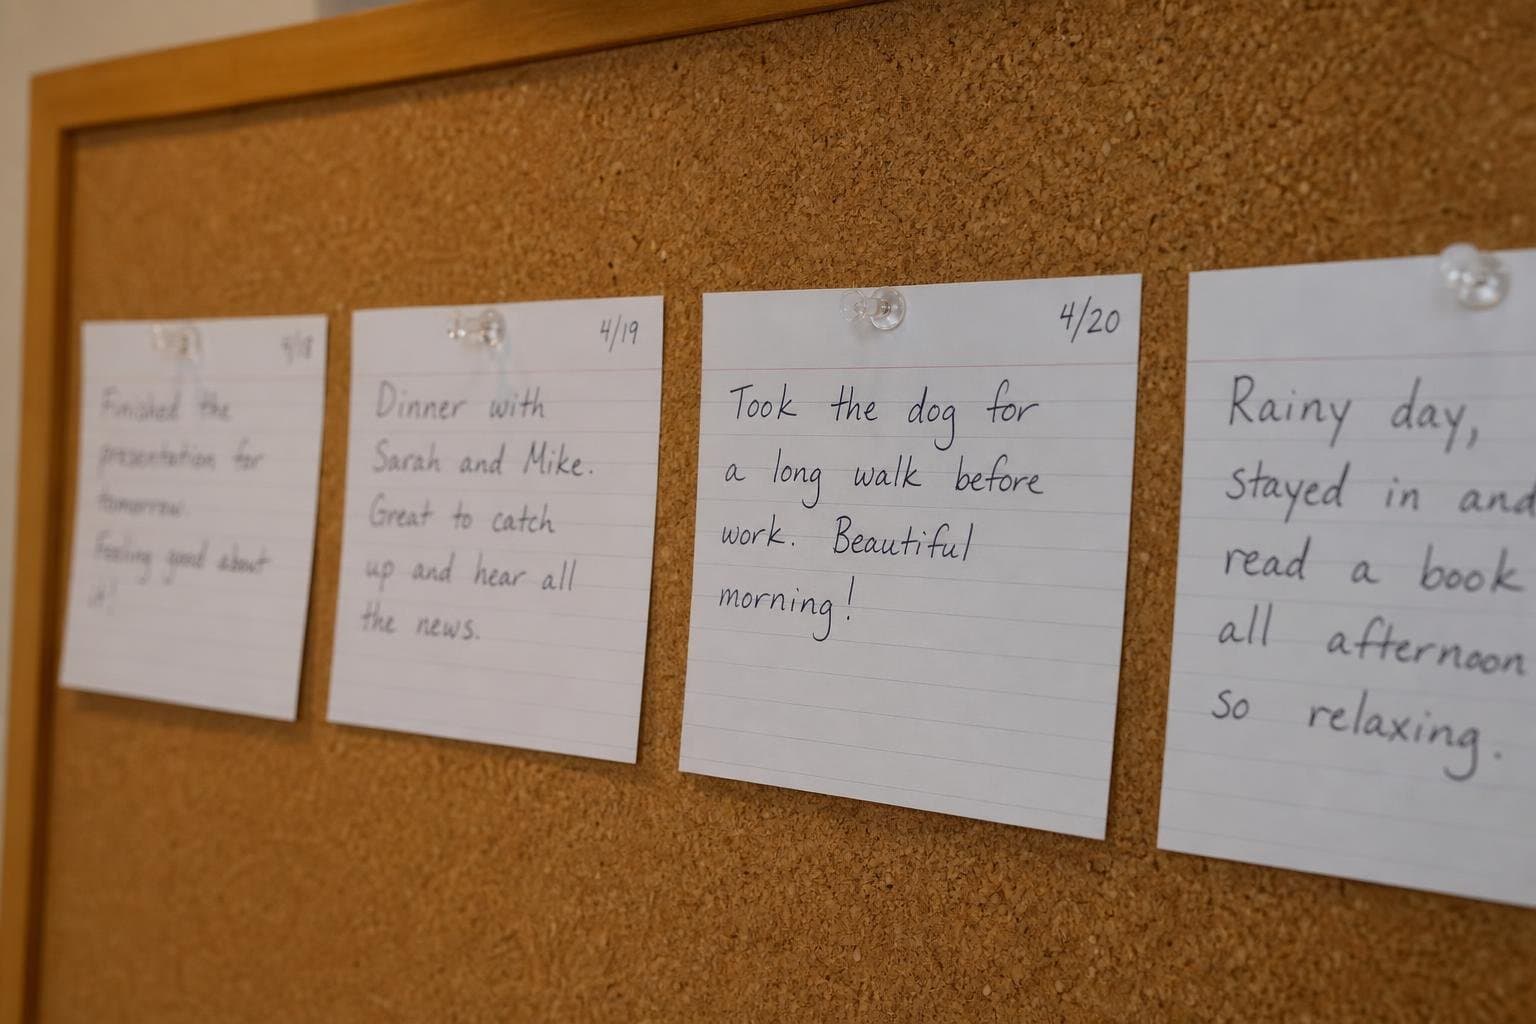 4/18
Finished the
presentation for
tomorrow.
Feeling good about
it!
4/19
Dinner with
Sarah and Mike.
Great to catch
up and hear all
the news.
4/20
Took the dog for
a long walk before
work. Beautiful
morning!
Rainy day,
stayed in and
read a book
all afternoon
so relaxing.